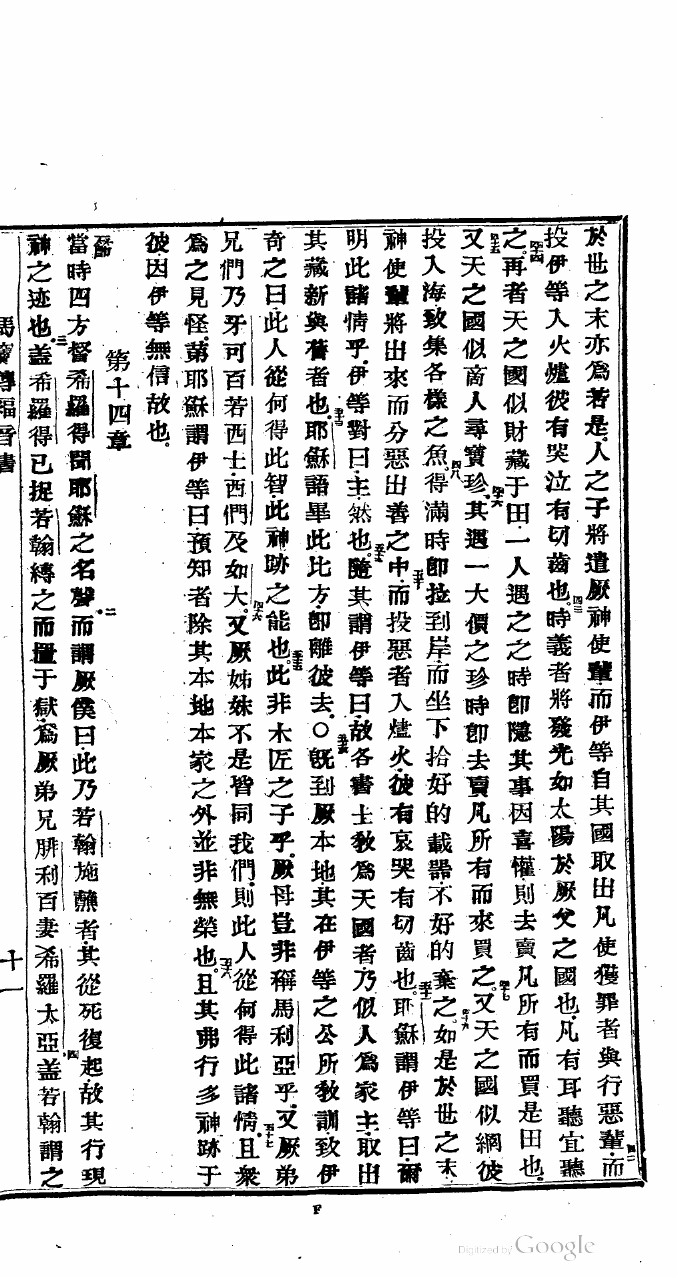 於世之末亦爲若是人之子將遣厥神使輩而伊等自其國取出凡使獲罪者與行惡輩而
投伊等入火爐彼有哭泣有切齒也時義者將發光如太陽於厥父之國也凡有耳聽宜聽
之再者天之國似財藏于田一人遇之之時卽隱其事因喜懽則去賣凡所有而買是田也
又天之國似商人尋寶珍其遇一大價之珍時卽去賣凡所有而來買之又天之國似網彼
投入海致集各樣之魚得滿時卽拉到岸而坐下拾好的載器不好的棄之如是於世之末
神使輩將出來而分惡出善之中而投惡者入爐火彼有哀哭有切齒也耶穌謂伊等曰爾
明此諸情乎伊等對曰主然也隨其謂伊等曰故各書士敎爲天國者乃似人爲家主取出
其藏新與舊者也耶穌語畢此比方卽離彼去〇旣到厥本地其在伊等之公所敎訓致伊
奇之曰此人從何得此智此神跡之能也此非木匠之子乎厥母豈非稱馬利亞乎又厥弟
兄們乃牙可百若西士西們及如大又厥姊妹不是皆同我們則此人從何得此諸情且衆
爲之見怪苐耶穌謂伊等曰預知者除其本地本家之外並非無榮也且其弗行多神跡于
彼因伊等無信故也
第十四章
當時四方督希羅得聞耶穌之名聲而謂厥僕曰此乃若翰施蘸者其從死復起故其行現
神之迹也蓋希羅得已捉若翰縛之而置于獄爲厥弟兄腓利百妻希羅太亞蓋若翰謂之
傳福音書
十一
F
Digitized by Google